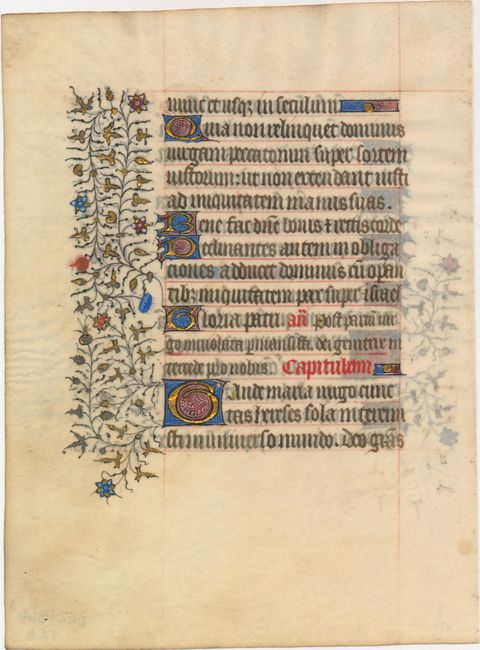 nunc et usq; in seculum
Quia non relinquet dominus
uirgam peccatorum super sortem
iustorum: ut non extendant iusti
ad iniquitatem manus suas.
Bene fac dñe bonis et rectis corde
Declinantes autem in obliga
ciones adducet dominus cũ opan
tib; iniquitatem pax super israel
Gloria patri añ Post partum uir
go inuiolata pmansisti dei genitrix in
tercede pro nobis Capitulum
Gaude maria uirgo cunc
tas hereses sola interemi
sti in uniuerso mundo. Deo grãs